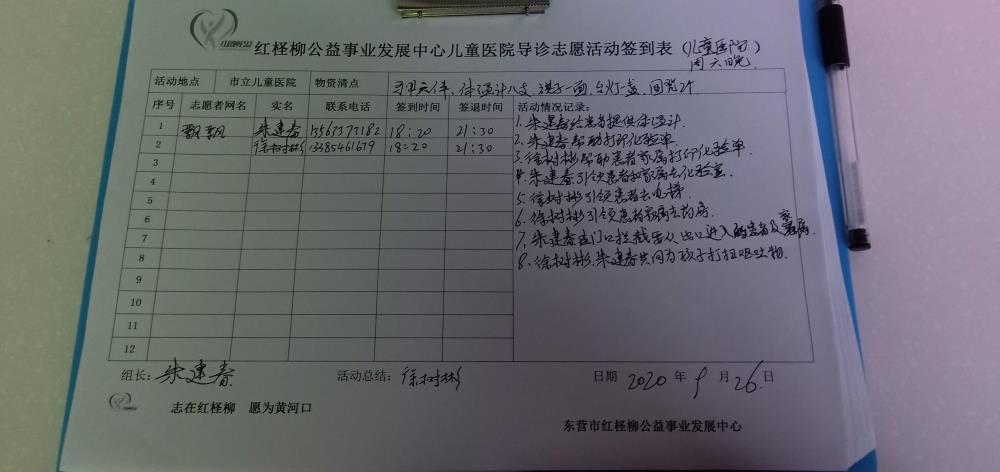 红柽柳公益事业发展中心儿童医院导诊志愿活动签到表（儿童医院）
周六晚
活动地点 市立儿童医院 物资清点 马甲六件、体温计八支、旗子一面、台灯一盏、
序号 志愿者网名 实名 联系电话 签到时间 签退时间 活动情况记录：
1 飘飘 朱建春 13563373182 18:20 21:30 1. 朱建春给患者提供体温计.
2 徐树彬 13385461679 18:20 21:30 2. 朱建春帮助打印化验单.
3 3. 徐树彬帮助患者家属打印化验单.
4 4. 朱建春引领患者和家属去化验室.
5 5. 徐树彬引领患者去电梯.
6 6. 徐树彬引领患者家属去药房.
7 7. 朱建春在门口拦截出口进入的患者及家属.
8 8. 徐树彬.朱建春共同为孩子打扫呕吐物.
9
10
11
12
组长：朱建春 活动总结：徐树彬 日期 2020 年 9 月 26 日
志在红柽柳 愿为黄河口
东营市红柽柳公益事业发展中心